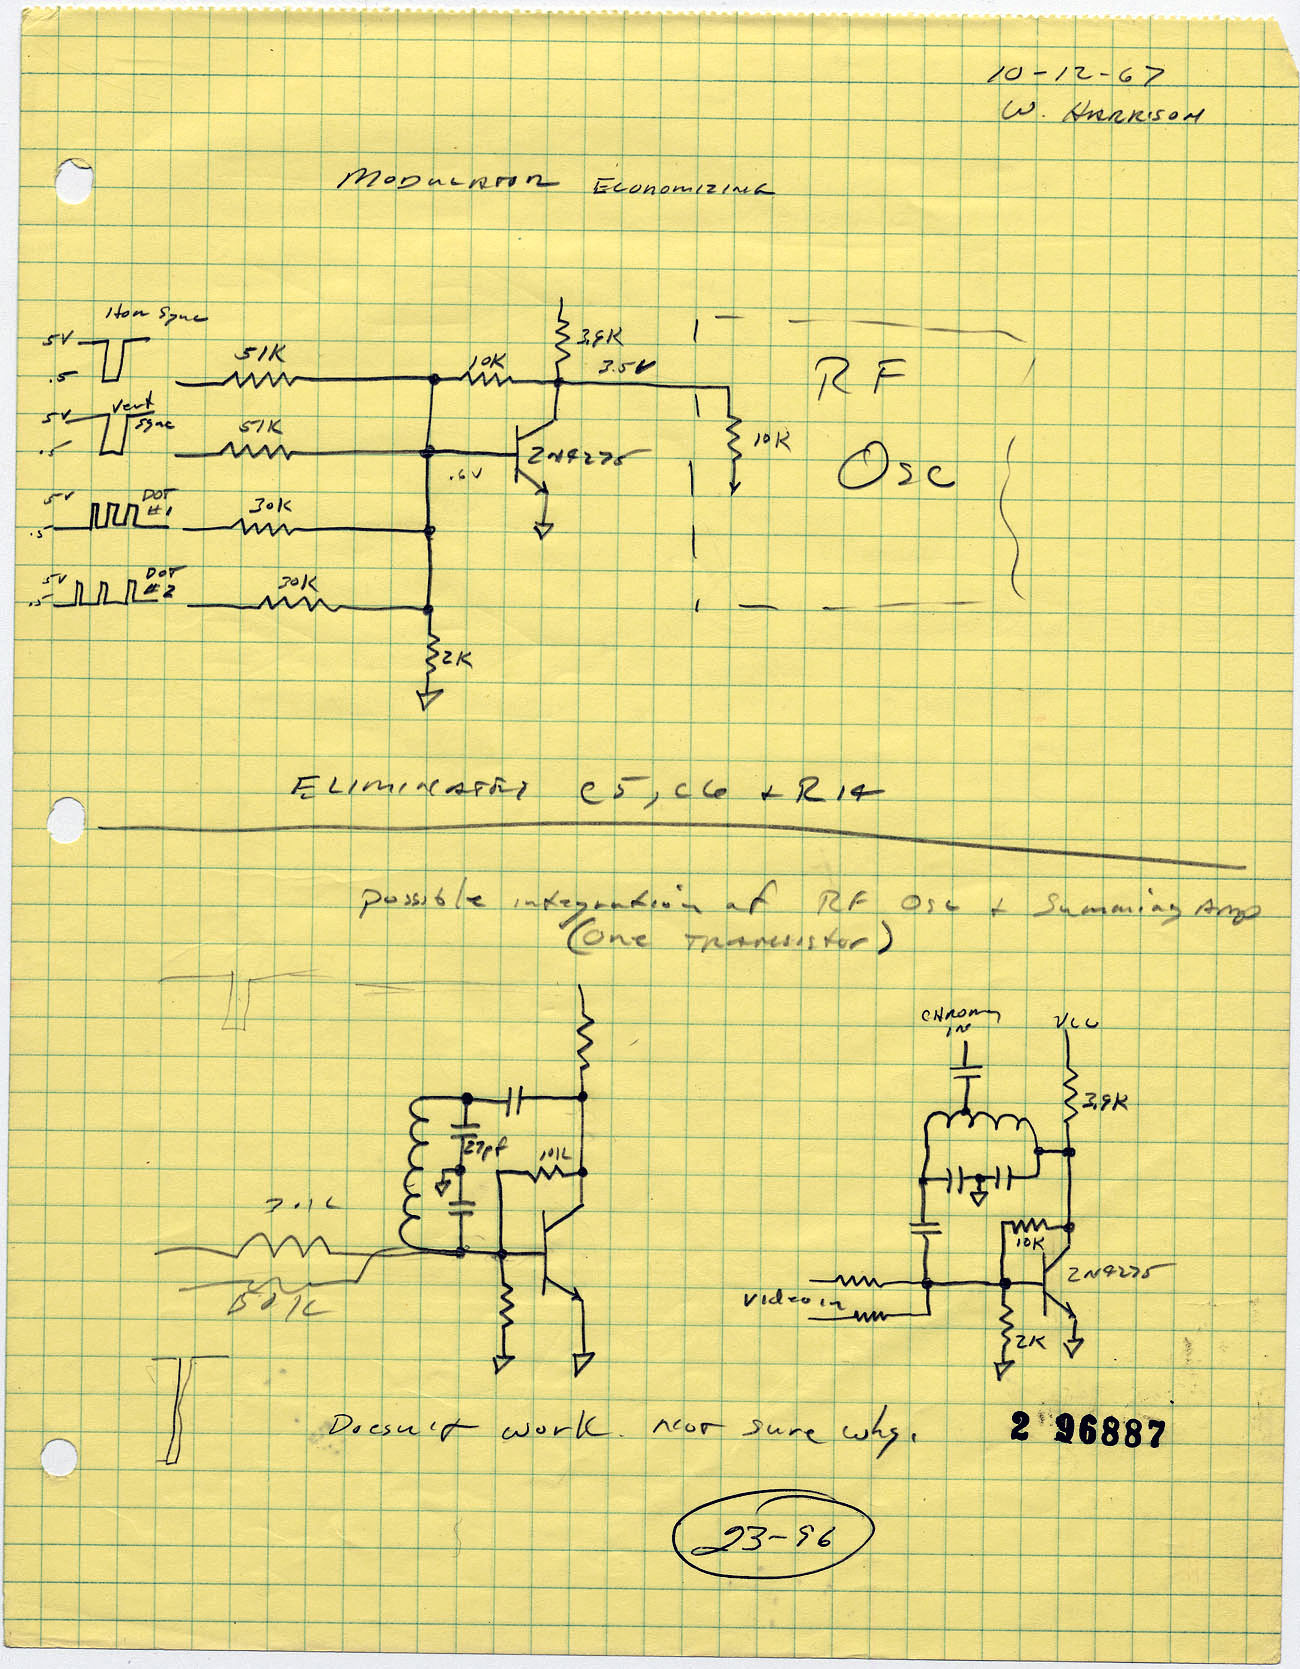 10-12-67
W. HARRISON
MODULATOR ECONOMIZING
Hor Sync
5V
.5
51K
10K
3.9K
3.5V
RF
Osc
5V
Vert
Sync
.5
51K
.6V
2N4275
10K
5V
DOT
#1
.5
30K
5V
DOT
#2
.5
30K
2K
ELIMINATES C5, C6 + R14
possible integration of RF Osc + Summing Amp
(One TRANSISTOR)
CHROMA
IN
VCC
3.9K
27pf
10K
10K
2N4275
Video in
2K
30K
50K
Doesn't work. not sure why.
2 96887
23-96